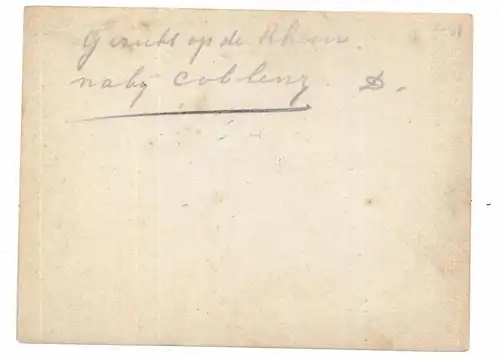 Gezicht op de Rhein
nabij Coblenz. D.